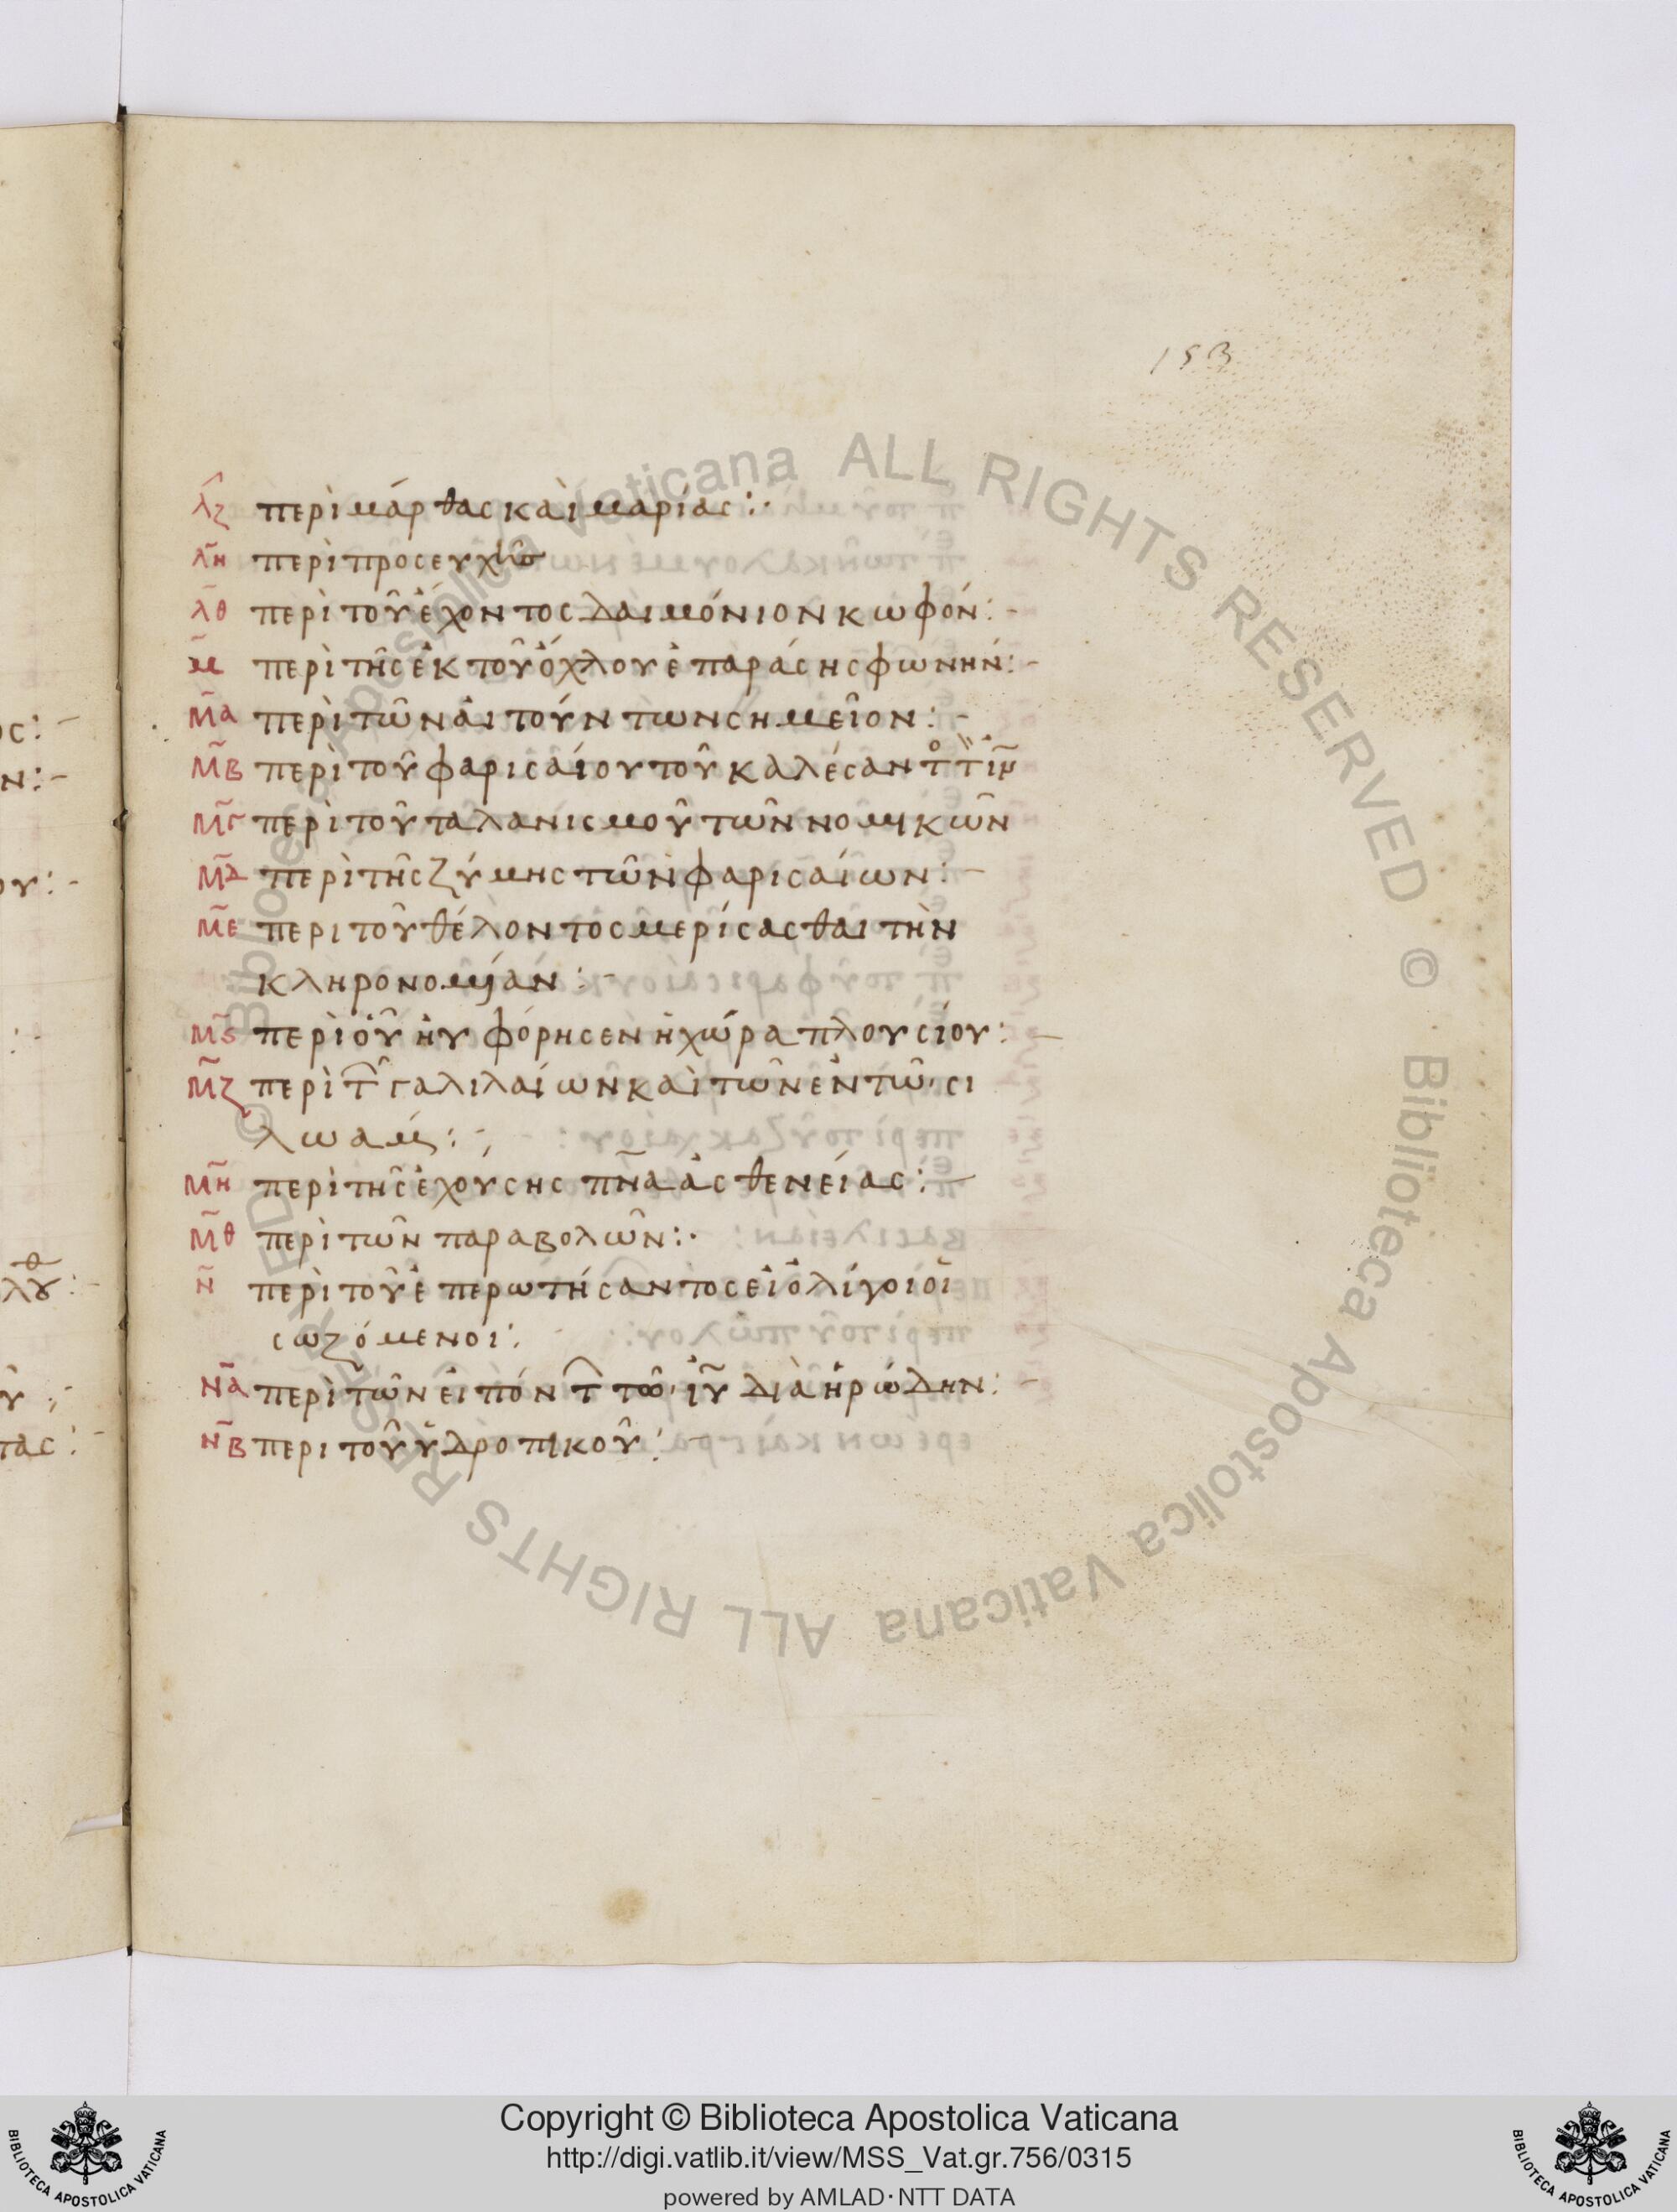 153
λζ περὶ μάρθας καὶ μαρίας:·
λη περὶ προσευχῆσ
λθ περὶ τοῦ ἔχοντος δαιμόνιον κωφόν:-
μ περὶ τῆς ἐκ τοῦ ὄχλου ἐπαράσης φωνήν:-
μα περὶ τῶν αἰτούντων σημεῖον:-
μβ περὶ τοῦ φαρισαίου τοῦ καλέσαντ τ ιν
μγ περὶ τοῦ ταλανισμοῦ τῶν νομικῶν
μδ περὶ τῆς ζύμης τῶν φαρισαίων:-
με περι τοῦ θέλοντος μερίσασθαι τὴν
κληρονομίαν:-
μς περὶ οὗ ηὐφόρησεν ἡ χώρα πλουσίου:-
μζ περὶ τ γαλιλαίων καὶ τῶν ἐν τῶ σι
λωαμ:-
μη περὶ τῆς ἐχούσης πνα ἀσθενείας:-
μθ περὶ τῶν παραβολῶν:·
ν περὶ τοῦ ἐπερωτήσαντος εἰ ὀλίγοι οἱ
σωζόμενοι:
να περὶ τῶν εἰπόντ τῶ ιυ διὰ ἡρώδην:-
νβ περι τοῦ ὑδροπικοῦ:-
© Biblioteca Apostolica Vaticana ALL RIGHTS RESERVED © Biblioteca Apostolica Vaticana ALL RIGHTS RESERVED
Copyright © Biblioteca Apostolica Vaticana
http://digi.vatlib.it/view/MSS_Vat.gr.756/0315
powered by AMLAD·NTT DATA
BIBLIOTECA APOSTOLICA VATICANA
BIBLIOTECA APOSTOLICA VATICANA